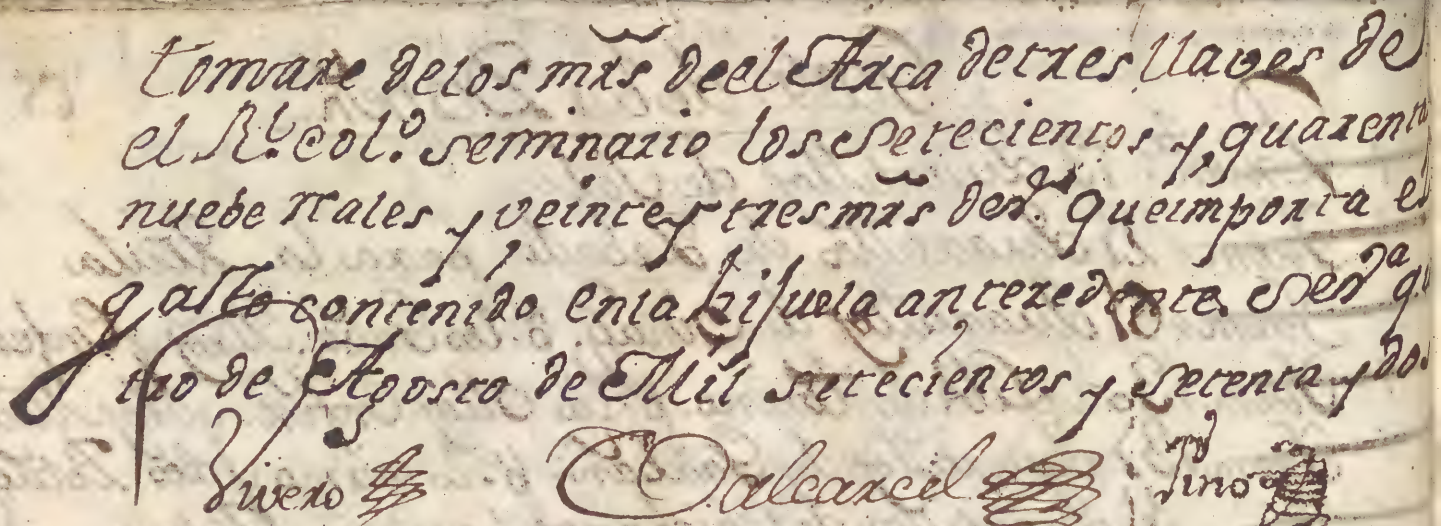 tomare delos mrs̃ deel Arca detres llaves de
el Rl. col.o seminario los Setecientos y quarenta
nuebe rrales y veinte y tres mrs̃ dev.n queimporta el
gasto contenido enla hijuela anteredente Sev.a qu
tro de Agosto de Mil setecientos y setenta y dos
Vivero Valcarcel Pino